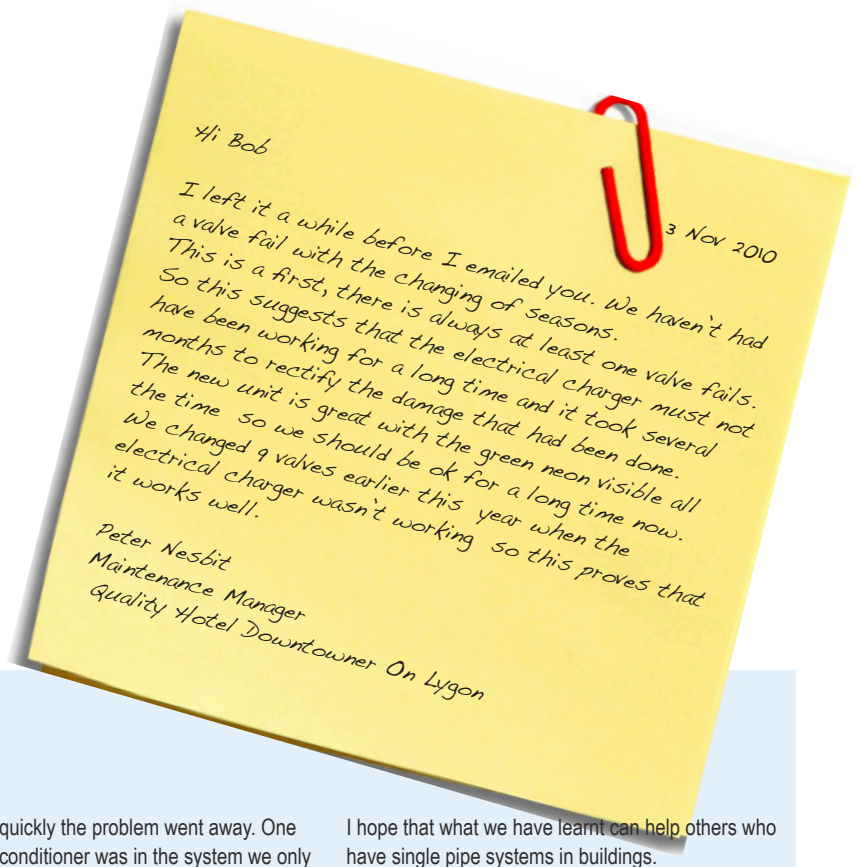 Hi Bob
3 Nov 2010
I left it a while before I emailed you. We haven't had
a valve fail with the changing of seasons.
This is a first, there is always at least one valve fails.
So this suggests that the electrical charger must not
have been working for a long time and it took several
months to rectify the damage that had been done.
The new unit is great with the green neon visible all
the time so we should be ok for a long time now.
We changed 9 valves earlier this year when the
electrical charger wasn't working so this proves that
it works well.
Peter Nesbit
Maintenance Manager
Quality Hotel Downtowner On Lygon
quickly the problem went away. One
conditioner was in the system we only
I hope that what we have learnt can help others who
have single pipe systems in buildings.